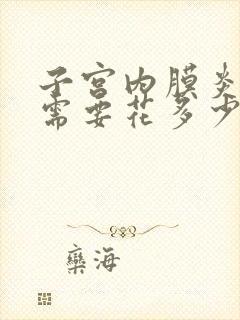 子宫内膜炎
需要花多少
栾海